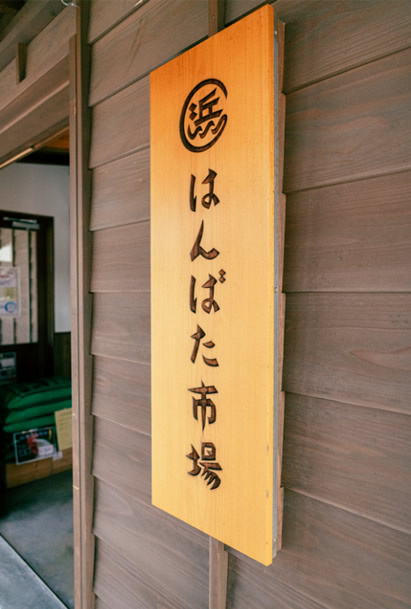 浜
はんばた市場